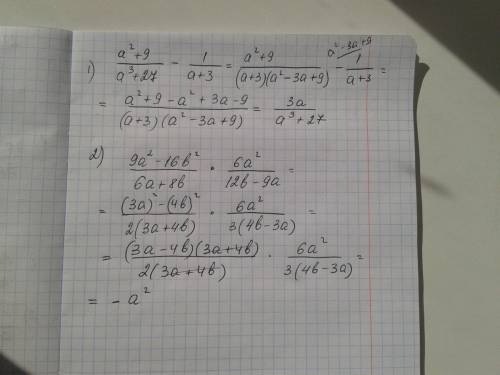 1) (a²+9)/(a³+27) - 1/(a+3) = (a²+9)/((a+3)(a²-3a+9)) - 1/(a+3) (a²-3a+9 =
= (a²+9-a²+3a-9)/((a+3)(a²-3a+9)) = 3a/(a³+27)
2) (9a²-16b²)/(6a+8b) · 6a²/(12b-9a) =
= ((3a)²-(4b)²)/(2(3a+4b)) · 6a²/(3(4b-3a)) =
= ((3a-4b)(3a+4b))/(2(3a+4b)) · 6a²/(3(4b-3a)) =
= - a²